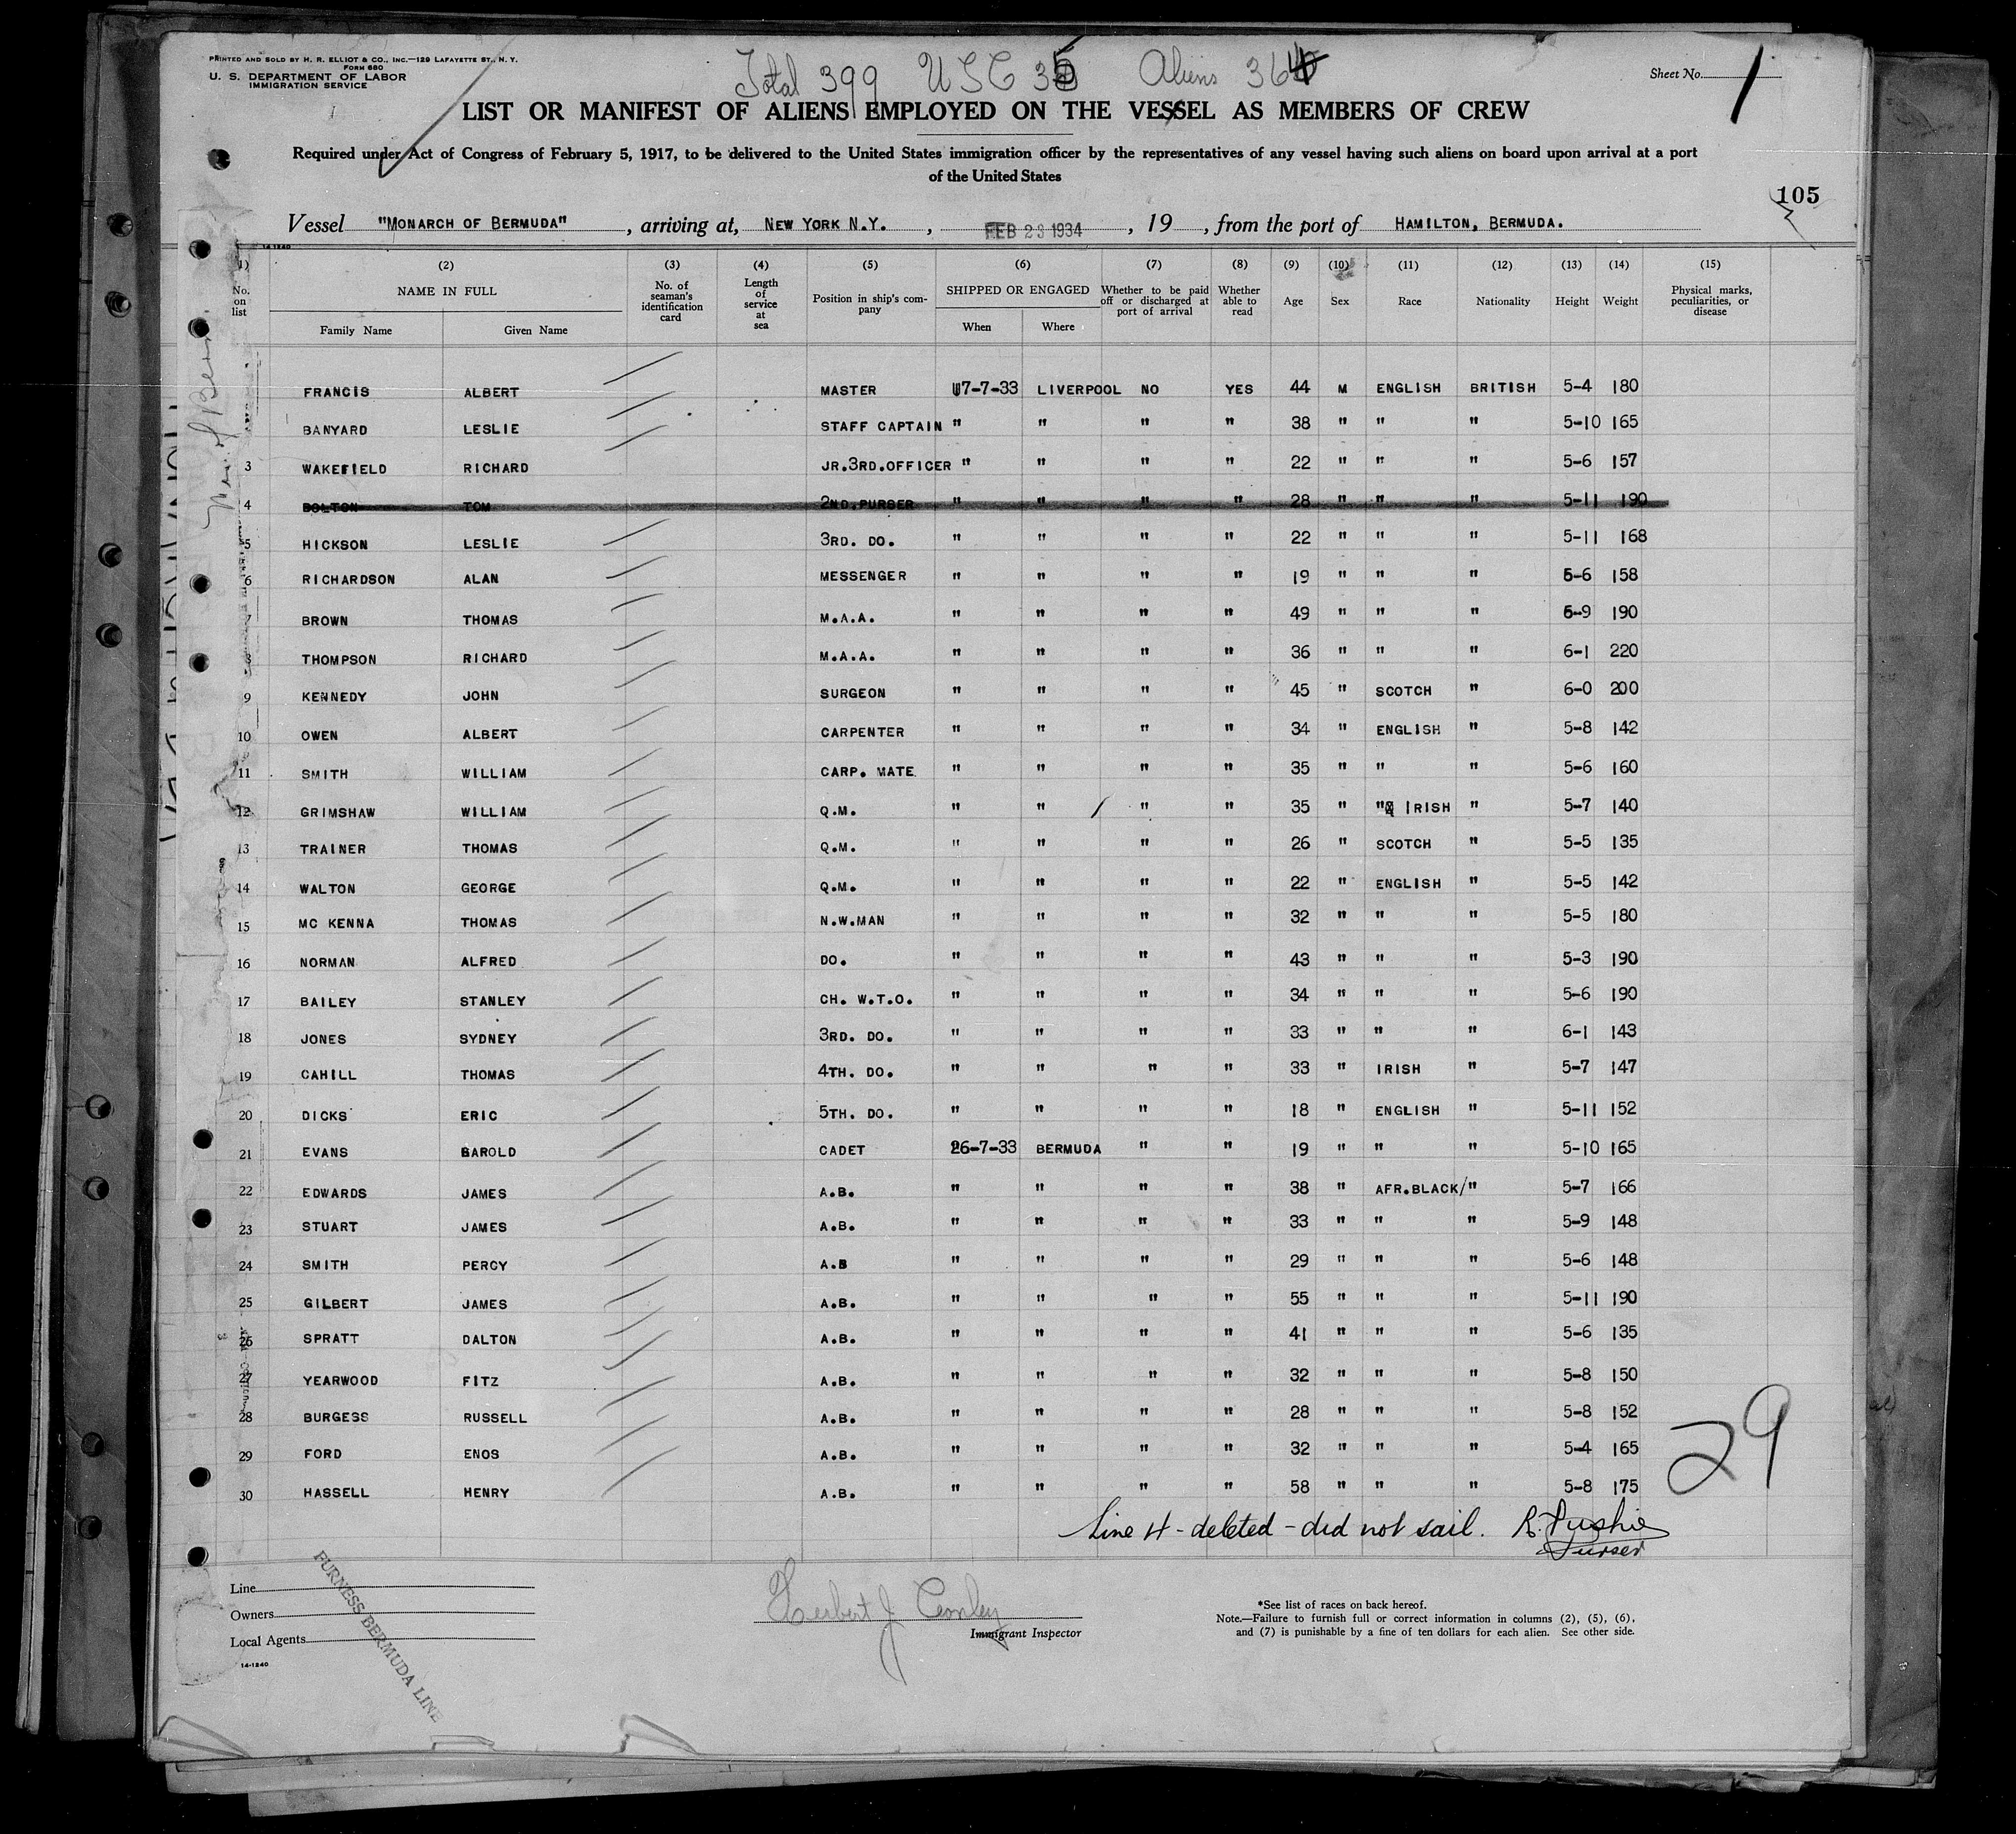 PRINTED AND SOLD BY H. R. ELLIOT & CO., INC.—129 LAFAYETTE ST., N. Y.
FORM 680
U. S. DEPARTMENT OF LABOR
IMMIGRATION SERVICE
Total 399 USC 35 Aliens 364
Sheet No. 1
LIST OR MANIFEST OF ALIENS EMPLOYED ON THE VESSEL AS MEMBERS OF CREW
Required under Act of Congress of February 5, 1917, to be delivered to the United States immigration officer by the representatives of any vessel having such aliens on board upon arrival at a port
of the United States
105
Vessel "MONARCH OF BERMUDA", arriving at, NEW YORK N.Y., FEB 23 1934, 19, from the port of HAMILTON, BERMUDA.
14-1240
(1) (2) (3) (4) (5) (6) (7) (8) (9) (10) (11) (12) (13) (14) (15)
No. on list NAME IN FULL Family Name Given Name No. of seaman's identification card Length of service at sea Position in ship's company SHIPPED OR ENGAGED When Where Whether to be paid off or discharged at port of arrival Whether able to read Age Sex Race Nationality Height Weight Physical marks, peculiarities, or disease
FRANCIS ALBERT MASTER 17-7-33 LIVERPOOL NO YES 44 M ENGLISH BRITISH 5-4 180
BANYARD LESLIE STAFF CAPTAIN " " " " 38 " " " 5-10 165
3 WAKEFIELD RICHARD JR.3RD.OFFICER " " " " 22 " " " 5-6 157
4 BOLTON TOM 2ND.PURSER " " " " 28 " " " 5-11 190
5 HICKSON LESLIE 3RD. DO. " " " " 22 " " " 5-11 168
6 RICHARDSON ALAN MESSENGER " " " " 19 " " " 5-6 158
7 BROWN THOMAS M.A.A. " " " " 49 " " " 5-9 190
8 THOMPSON RICHARD M.A.A. " " " " 36 " " " 6-1 220
9 KENNEDY JOHN SURGEON " " " " 45 " SCOTCH " 6-0 200
10 OWEN ALBERT CARPENTER " " " " 34 " ENGLISH " 5-8 142
11 SMITH WILLIAM CARP. MATE " " " " 35 " " " 5-6 160
12 GRIMSHAW WILLIAM Q.M. " " " " 35 " " IRISH " 5-7 140
13 TRAINER THOMAS Q.M. " " " " 26 " SCOTCH " 5-5 135
14 WALTON GEORGE Q.M. " " " " 22 " ENGLISH " 5-5 142
15 MC KENNA THOMAS N.W.MAN " " " " 32 " " " 5-5 180
16 NORMAN ALFRED DO. " " " " 43 " " " 5-3 190
17 BAILEY STANLEY CH. W.T.O. " " " " 34 " " " 5-6 190
18 JONES SYDNEY 3RD. DO. " " " " 33 " " " 6-1 143
19 CAHILL THOMAS 4TH. DO. " " " " 33 " IRISH " 5-7 147
20 DICKS ERIC 5TH. DO. " " " " 18 " ENGLISH " 5-11 152
21 EVANS BAROLD CADET 26-7-33 BERMUDA " " 19 " " " 5-10 165
22 EDWARDS JAMES A.B. " " " " 38 " AFR.BLACK/ " 5-7 166
23 STUART JAMES A.B. " " " " 33 " " " 5-9 148
24 SMITH PERCY A.B " " " " 29 " " " 5-6 148
25 GILBERT JAMES A.B. " " " " 55 " " " 5-11 190
26 SPRATT DALTON A.B. " " " " 41 " " " 5-6 135
27 YEARWOOD FITZ A.B. " " " " 32 " " " 5-8 150
28 BURGESS RUSSELL A.B. " " " " 28 " " " 5-8 152
29 FORD ENOS A.B. " " " " 32 " " " 5-4 165
30 HASSELL HENRY A.B. " " " " 58 " " " 5-8 175
29
Line 4 - deleted - did not sail. R. Pushie
Purser
Line
Owners
Local Agents
14-1240
FURNESS BERMUDA LINE
Immigrant Inspector
*See list of races on back hereof.
Note.—Failure to furnish full or correct information in columns (2), (5), (6),
and (7) is punishable by a fine of ten dollars for each alien. See other side.